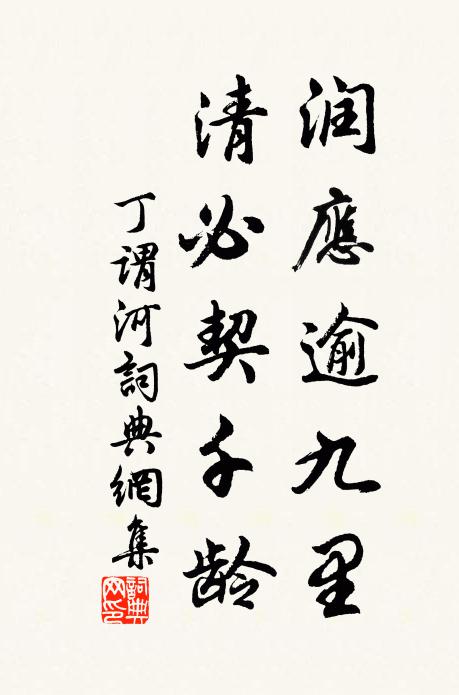 润應逾九里
清必契千龄
丁謂河詞典網集
詞典网印